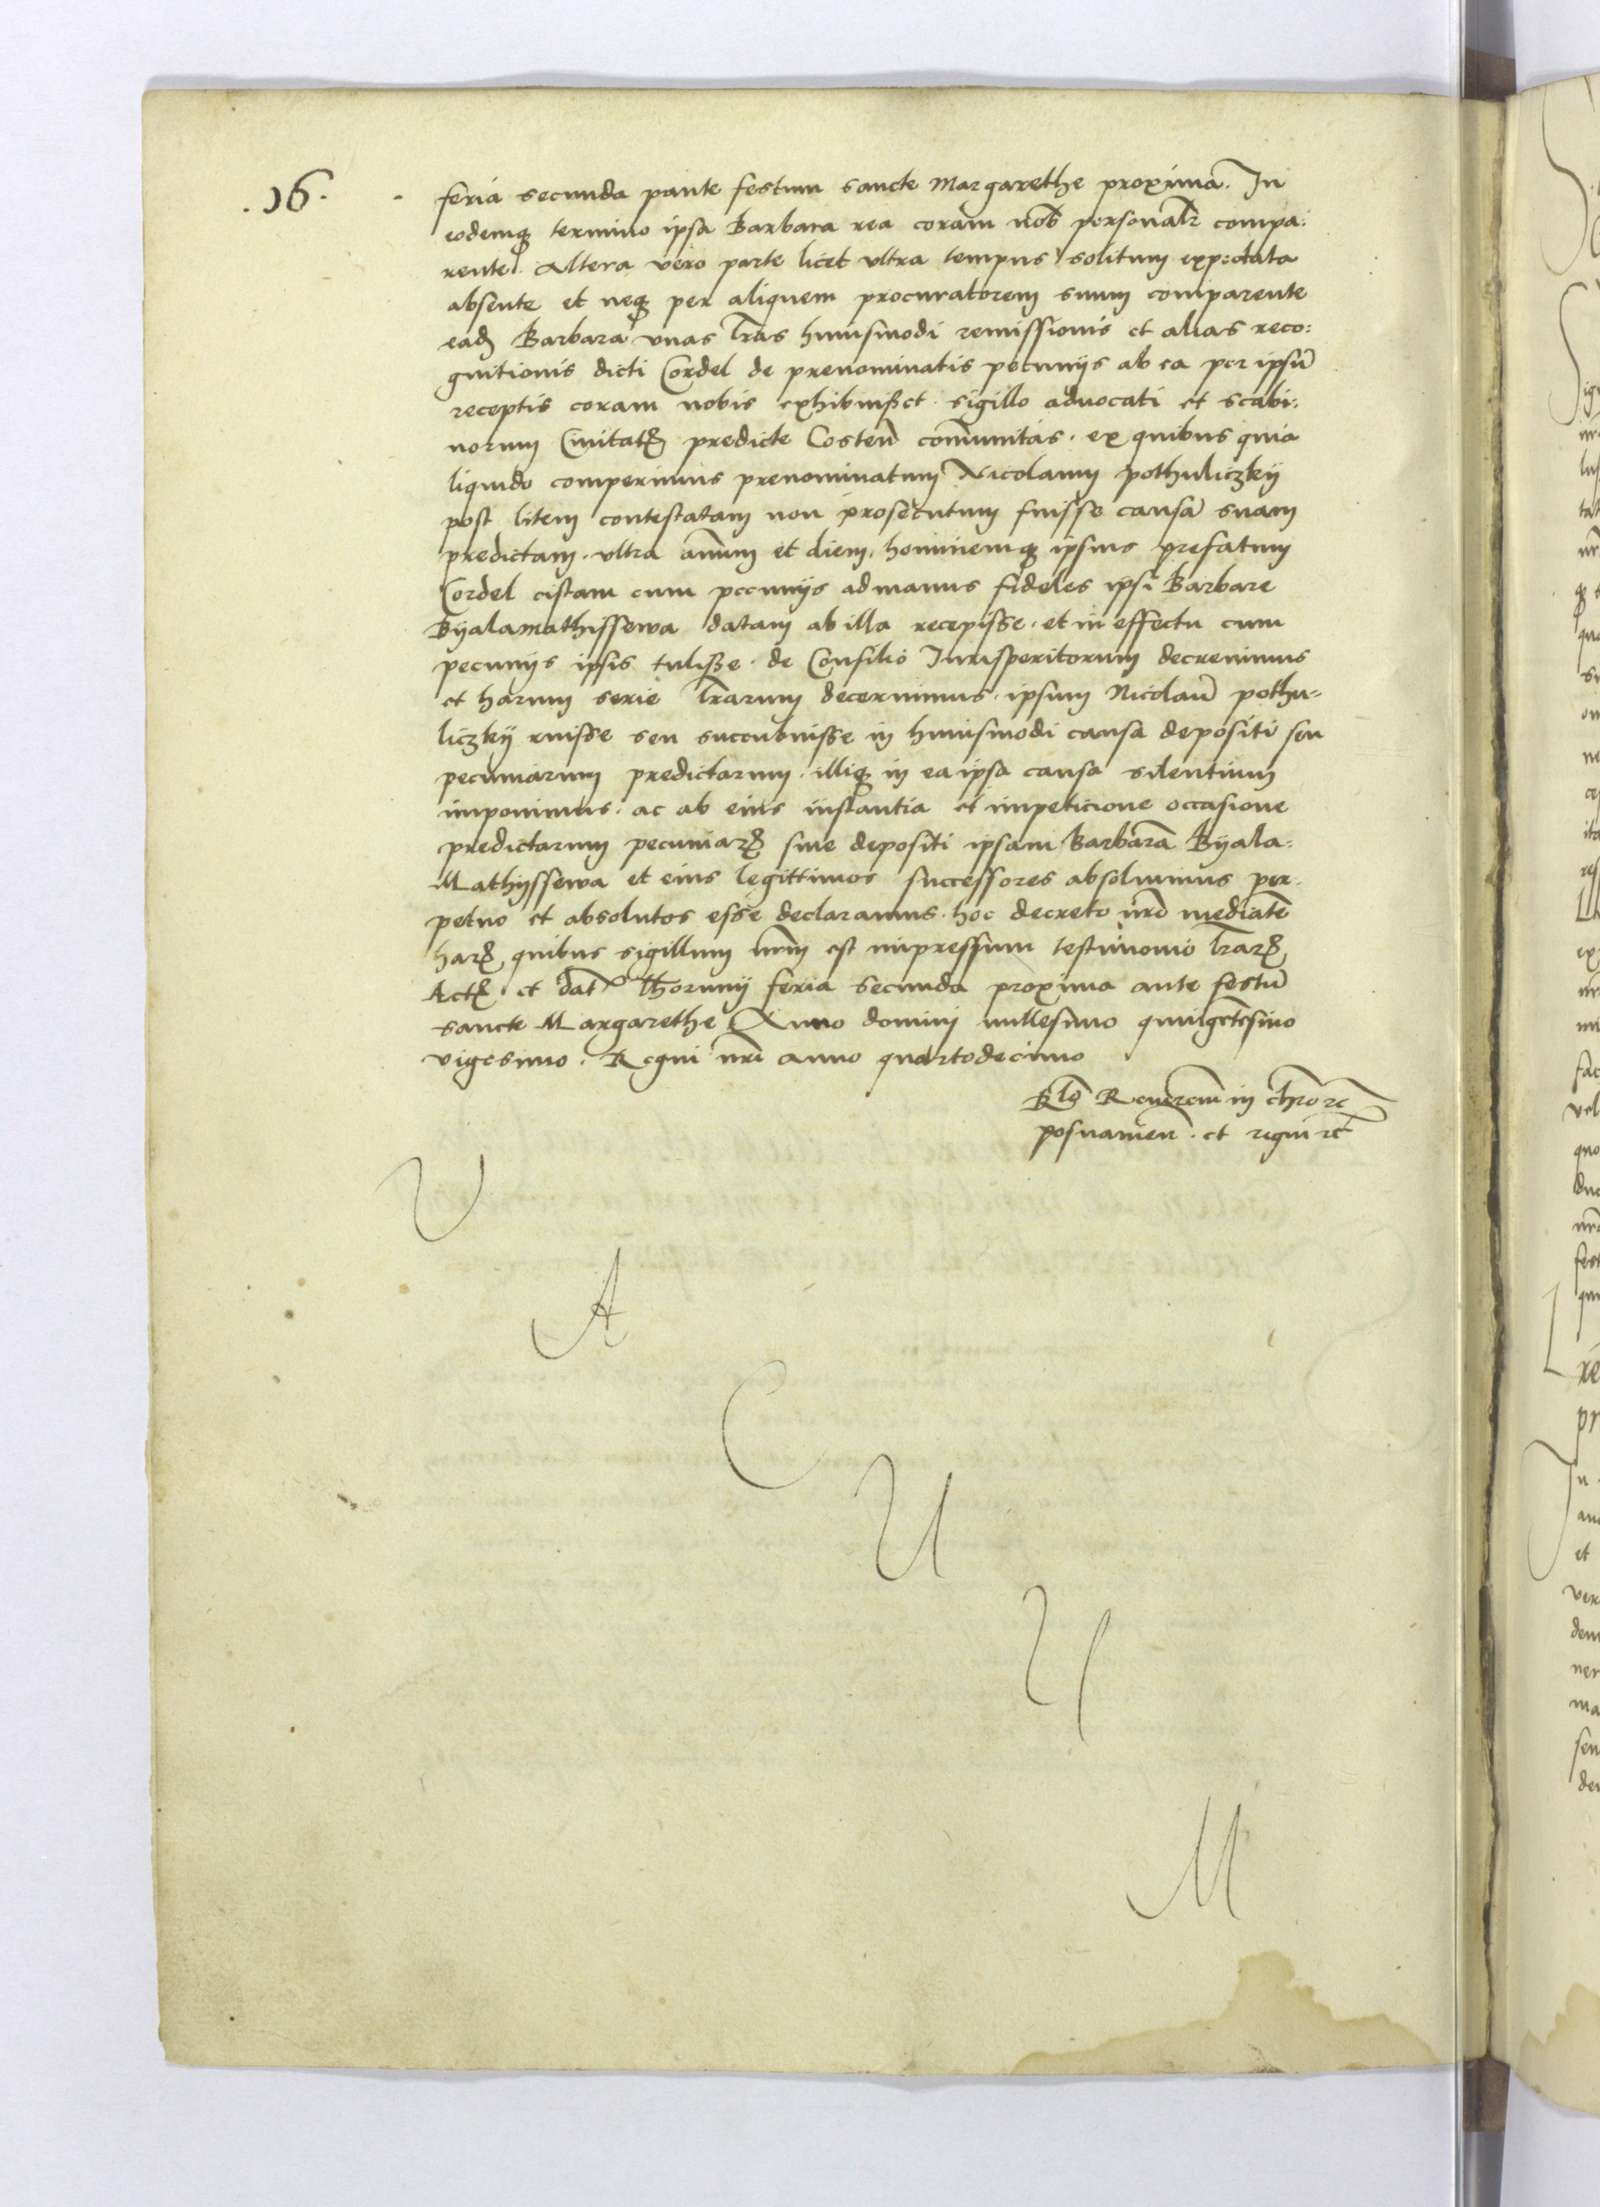 .16.
feria secunda pante festum sancte Margarethe proxima. In
eodemq termino ipsa Barbara rea coram nob personalr compa:
rente. Altera vero parte licet vltra tempus solitum expectata
absente et neq per aliquem procuratorem suum comparente
ead Barbara vnas lras huiusmodi remissionis et alias reco:
gnitionis dicti Cordel de prenominatis pecunijs ab ea per ipsu
receptis coram nobis exhibuisset sigillo aduocati et scabi:
norum Ciuitat predicte Costen comunitas. ex quibus quia
liquido comperimus prenominatum Nicolaum pothuliczky
post litem contestatam non prosecutum fuisse causa suam
predictam. vltra annum et diem. hominemq ipsius prefatum
Cordel cistam cum pecunijs ad manus fideles ipsi Barbare
Byalamathissewa datam ab illa recepisse. et in effectu cum
pecunijs ipsis tulisse. de Consilio Iurisperitorum decreuimus
et harum serie lrarum decernimus. ipsum Nicolau pothu-
liczky ruisse seu succubuisse in huiusmodi causa depositi seu
pecuniarum predictarum. illiq in ea ipsa causa silentium
imponimus. ac ab eius instantia et impeticione occasione
predictarum pecuniar siue depositi ipsam Barbara Byala-
Mathyssewa et eius legittimos successores absoluimus per-
petuo et absolutos esse declaramus. hoc decreto nro mediate
har quibus sigillum nrm est impressum testimonio lrar
Act et dat Thoruny feria secunda proxima ante festu
sancte Margarethe Anno domini millesimo quingetesimo
vigesimo. Regni nri anno quartodecimo
Rlo Reuerem in chro rc
posnanien. et regni rc
V
A
C
U
U
M